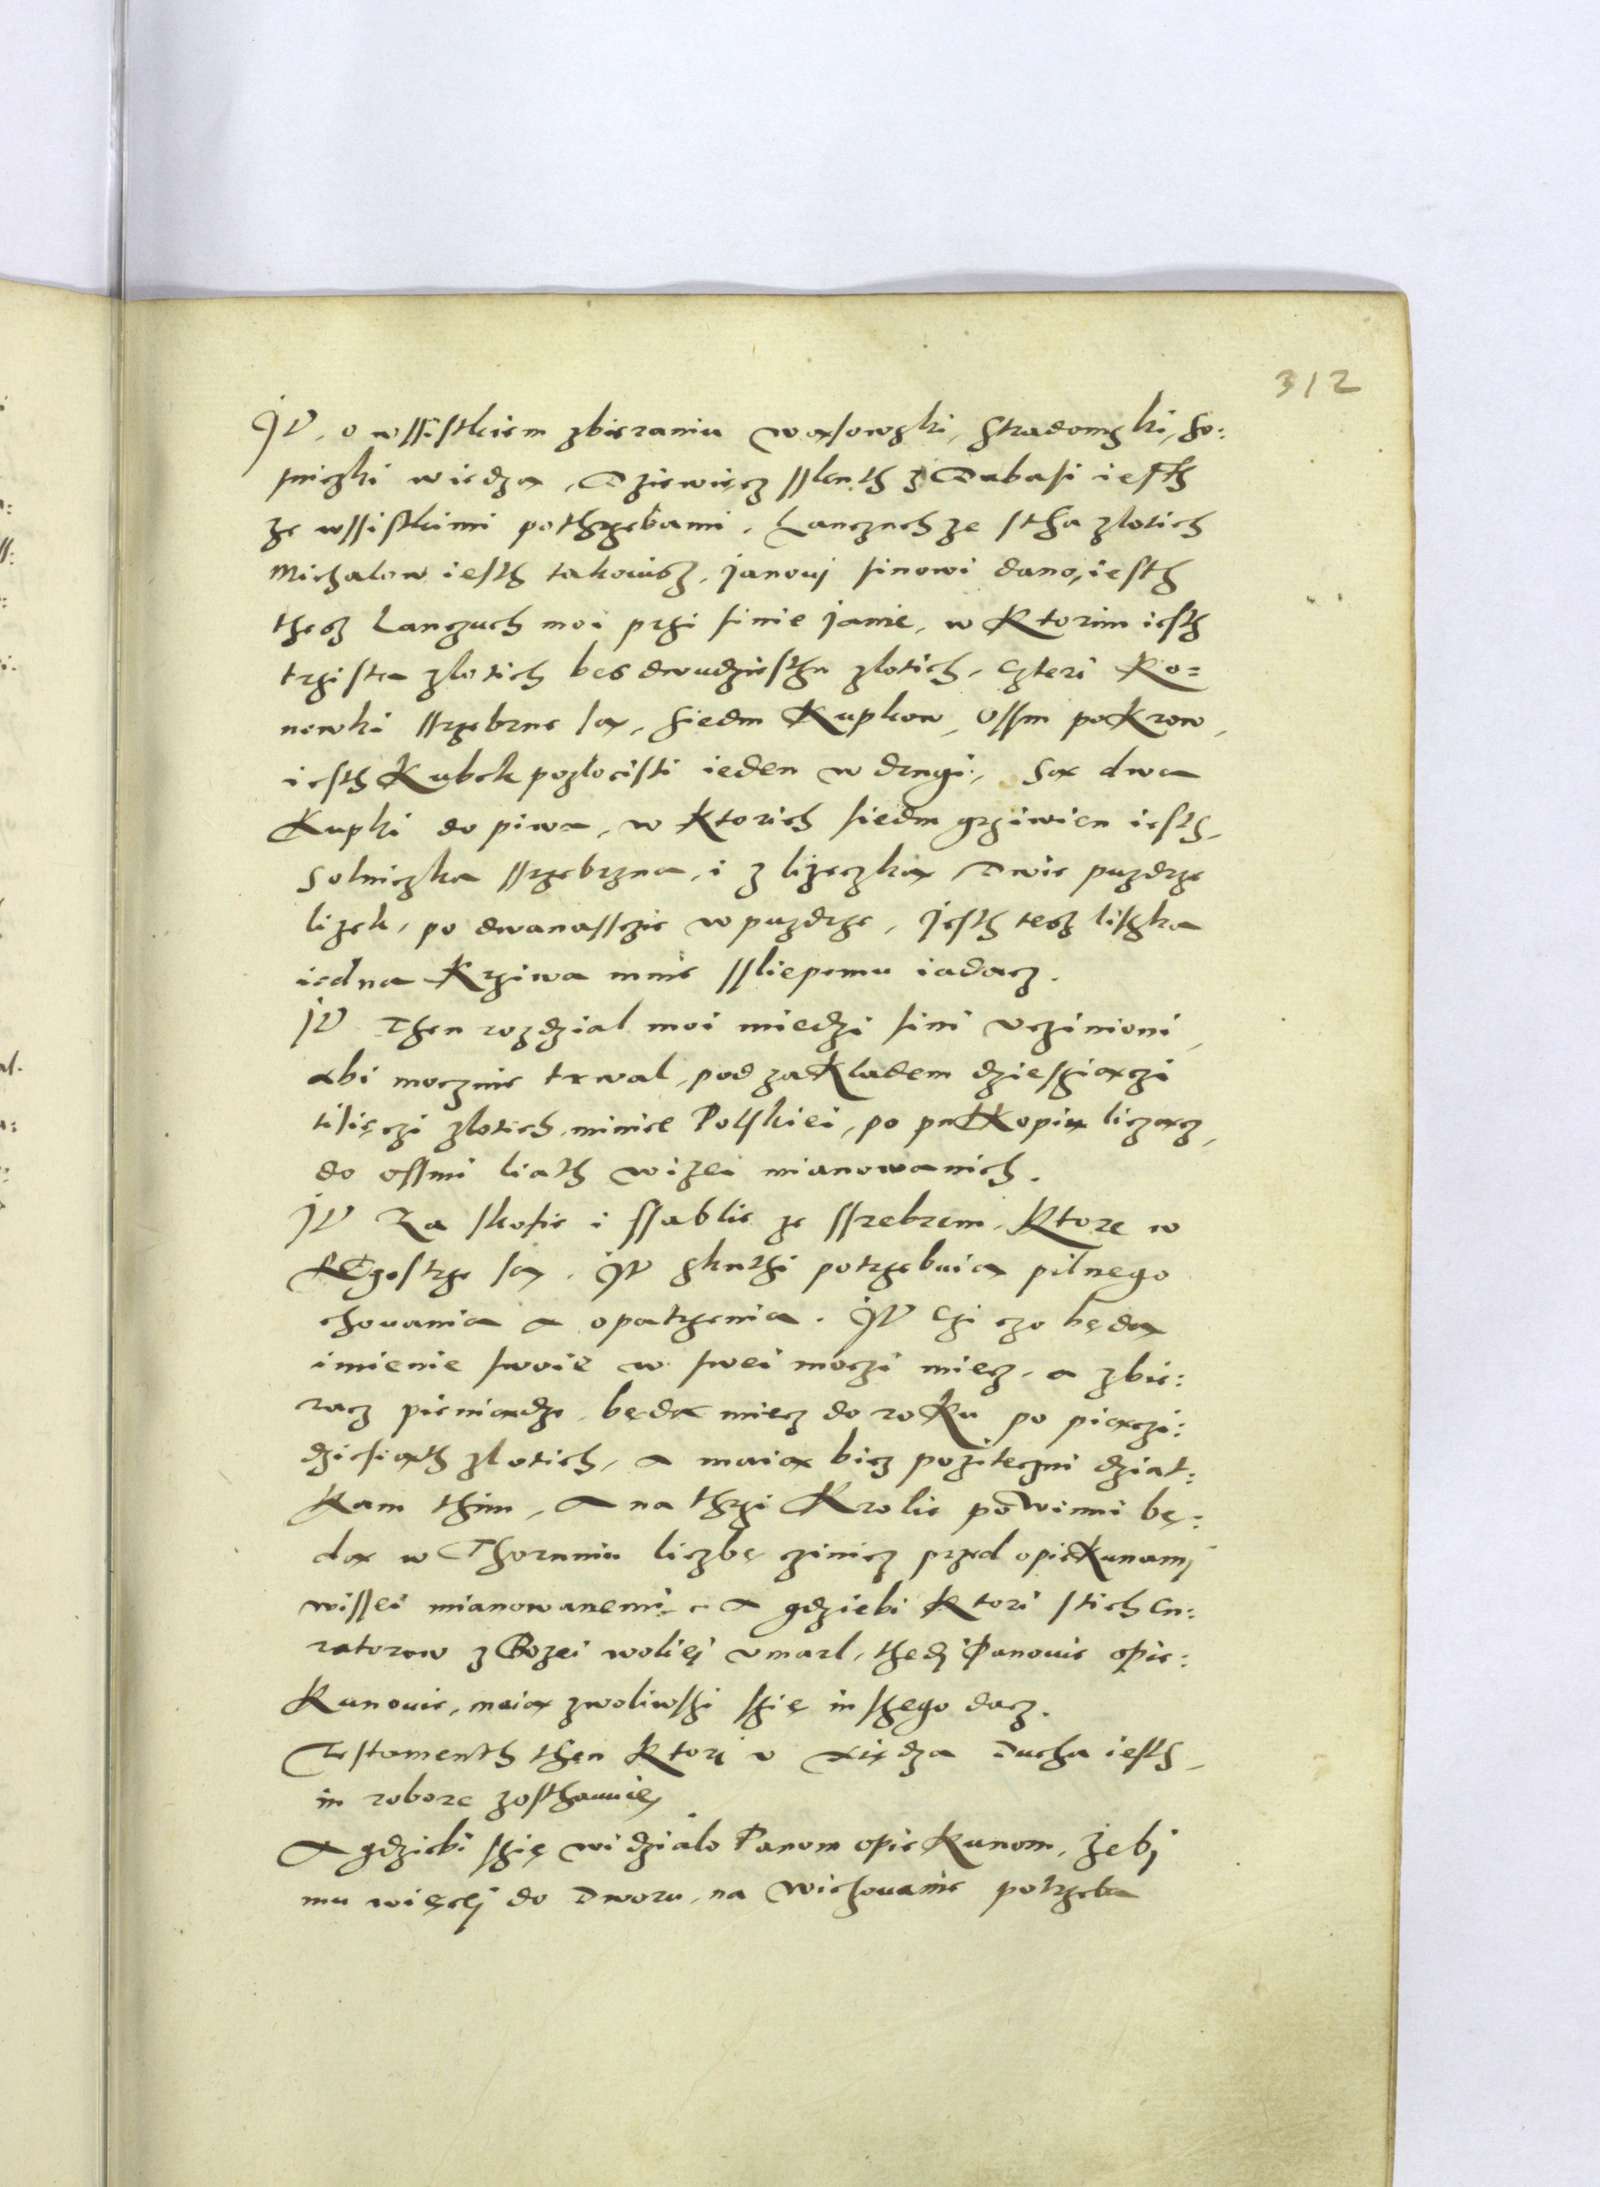 312
It, o wssistkiem zbieraniu Wąsowski, Stradomski, So:
sniczki wiedzą, Dziewięcz sslenth z Dubasi iesth
ze wssistkimi pothrzebami, Lanczuch ze stha zlotich
Michalow iesth takowisz, Janowj sinowi dano, iesth
thesz Lanczuch moi przi sinie Janie, w Ktorim iesth
trzista zlotich bes dwudziesthu zlotich, czteri Ko=
newki ssrzebrne są, Siedm Kupkow, Ossm poKrow,
iesth Kubek pozlocisti ieden w drugi, Są dwa
Kupki do piwa, w Ktorich siedm grziwien iesth,
Solniczka ssrzebrzna, i z lizeczką, Dwie puzdrze
lizek, po dwanasscie w puzdrze, Jesth tesz liszka
iedna Krziwa mnie sslepemu iadacz.
It Then rozdzial moi miedzi sini vczinioni,
abi mocznie trwal, pod zaKladem dziesziączi
tisięczi zlotich minice Polskiei, po pulKopiu licząc,
do ossmi liath wizei mianowanich.
It Za skofie i ssablie ze ssrebrem, Ktore w
REgestrze są. It skurzi potrzebuią pilnego
chowania a opatrzenia. It Czi czo będą
imienie swoie w swei moczi miecz, a zbie:
racz pieniądze, będą miecz do roKu po piączi:
dziesiąth zlotich, a maią bicz pozitecznі dziat:
Kam thim, A na thrzi Krolie powinni bę:
dą w Thoruniu liczbę czinicz przed opieKunamj
wissei mianowanemi. A gdziebi Ktori stich Cu:
ratorow z Bozei woliej vmarl, thedj Panowie opie:
Kunowie, maią zwoliwszi szię inszego dacz.
Testamenth then Ktorj v xiędza Ducha iesth,
in robore zosthawuię,
A gdziebi szię widzialo Panom opieKunom, zebj
mu więcej do Dworu, na wichowanie potrzeba